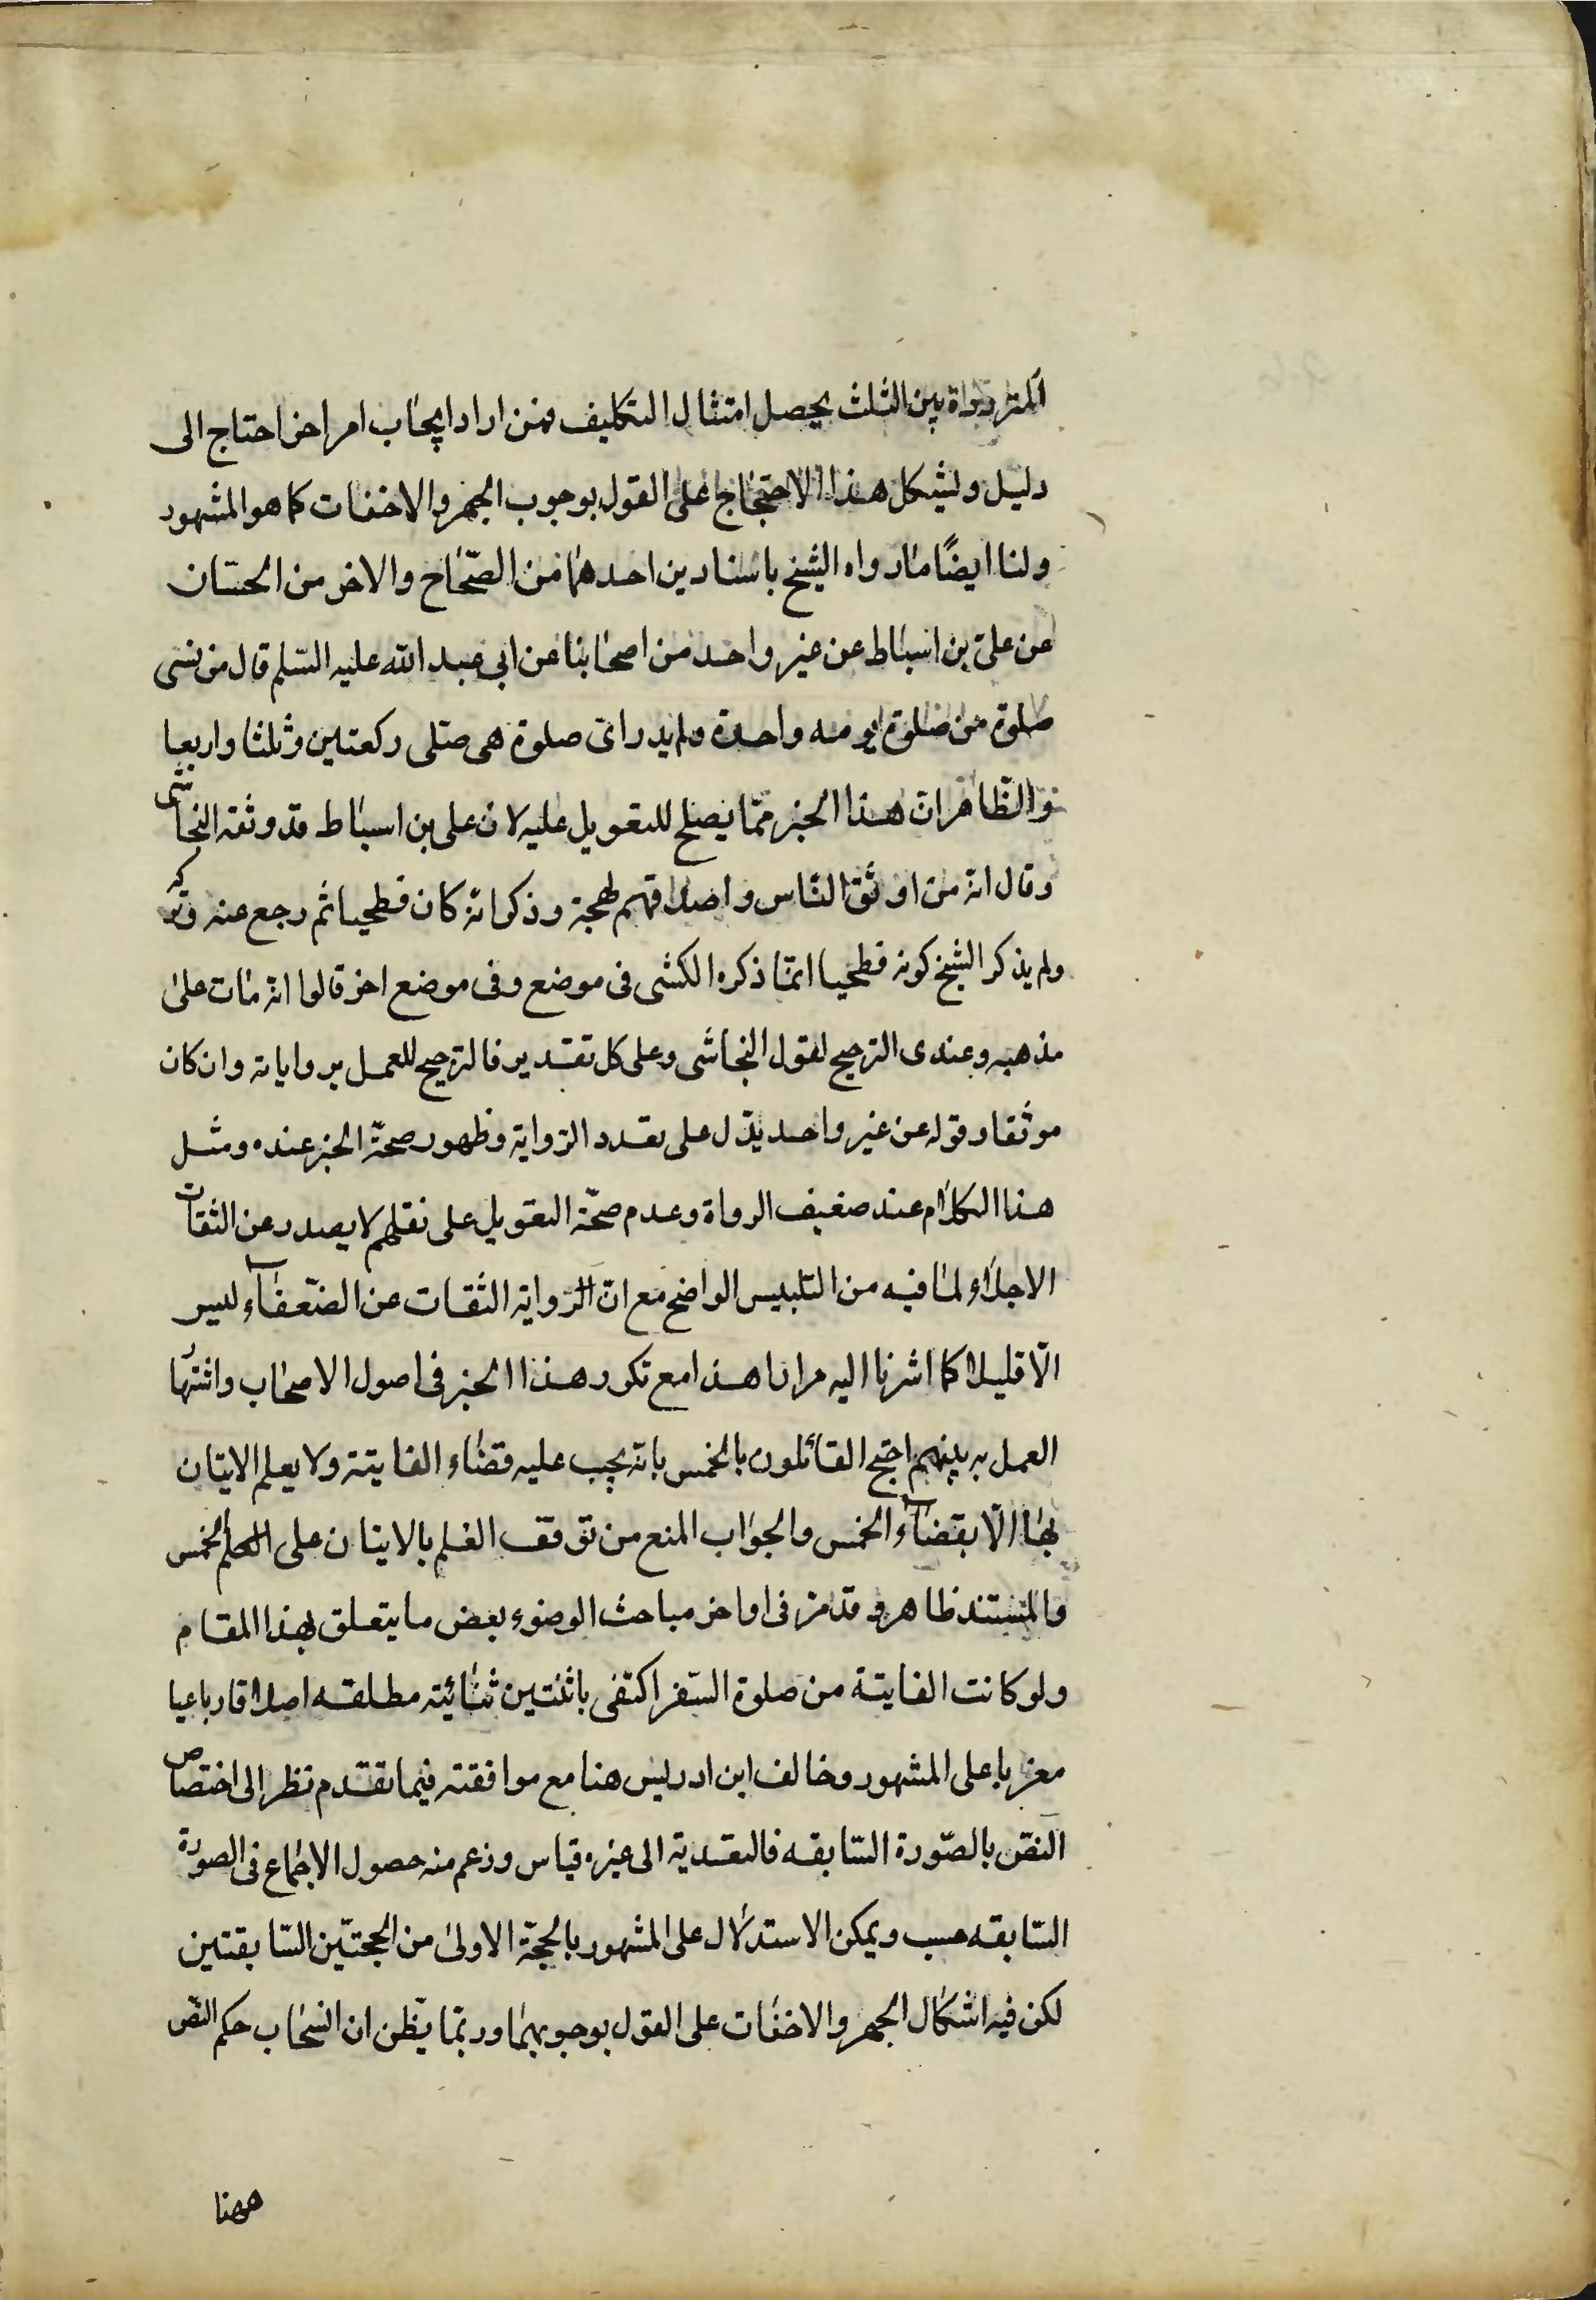 المترددة بين الثلث يحصل امتثال التكليف فمن اراد ايجاب امر اخر احتاج الى
دليل وليشكل هذا الاحتجاج على القول بوجوب الجهر والاخفات كما هو المشهور
ولنا ايضًا ما رواه الشيخ باسنادين احدهما من الصّحاح والاخر من الحسان
عن علىّ بن اسباط عن غير واحد من اصحابنا عن ابى عبد الله عليه السّلم قال من نسى
صلوة من صلوة يومه واحدة ولم يدر اىّ صلوة هى صلى ركعتين وثلثا واربعا
والظّاهر انّ هذا الخبر ممّا يصلح للتعويل عليه لان على بن اسباط قد وثقه النجاشى
وقال انه من اوثق النّاس واصدقهم لهجة وذكر انه كان فطحيا ثم رجع عنه وتركه
ولم يذكر الشيخ كونه فطحيا انمّا ذكره الكشى فى موضع وفى موضع اخر قالوا انه مات على
مذهبه وعندى الترجيح لقول النجاشى وعلى كل تقدير فالترجيح للعمل برواياته وان كان
موثقا وقوله عن غير واحد يدّل على تعدد الرّواية وظهور صحّة الخبر عنده ومثل
هذا الكلام عند ضعيف الرواة وعدم صحّة التعويل على نقلهم لا يصدر عن الثقات
الاجلاء لما فيه من التلبيس الواضح مع انّ الرّواية الثقات عن الضّعفآء ليس
الّا قليلا كما اشرنا اليه مرارا هذا مع تكرر هذا الخبر فى اصول الاصحاب واشتهار
العمل به بينهم احتج القائلون بالخمس بانه يجب عليه قضاء الفايتة ولا يعلم الاتيان
بها الّا بقضآء الخمس والجواب المنع من توقف العلم بالاتيان على الخمس
والمستند ظاهر وقد مر فى اواخر مباحث الوضوء بعض ما يتعلق بهذا المقام
ولو كانت الفايتة من صلوة السّفر اكتفى باثنتين ثنائيّة مطلقه اطلاقا رباعيا
مغربا على المشهور وخالف ابن ادريس هنا مع موافقته فيما تقدم نظرا الى اختصاص
النص بالصّورة السّابقه فالتعدية الى غيره قياس وزعم منه حصول الاجماع فى الصورة
السّابقه حسب ويمكن الاستدلال على المشهور بالحجّة الاولى من الحجتّين السّابقتين
لكن فيه اشكال الجهر والاخفات على القول بوجوبهما وربمّا يظن ان انسحاب حكم النص
ههنا